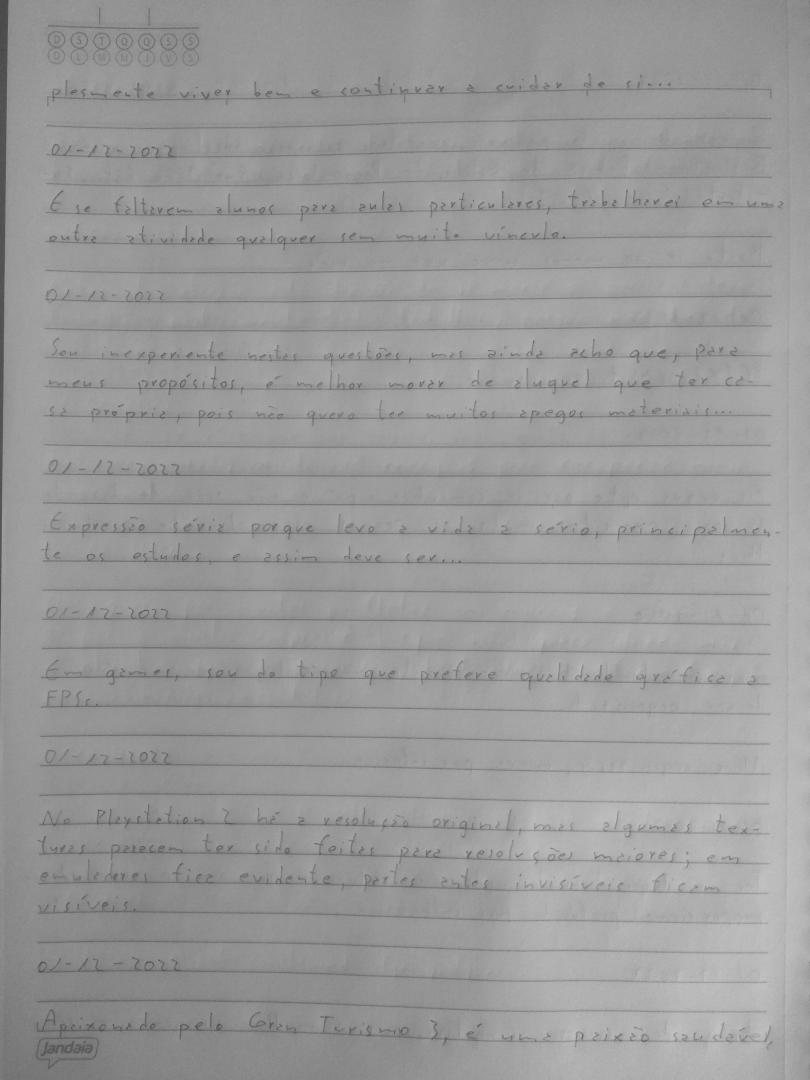 D S T Q Q S S
D L M M J V S
plesmente viver bem e continuar a cuidar de si...
01-12-2022
E se faltarem alunos para aulas particulares, trabalharei em uma
outra atividade qualquer sem muito vínculo.
01-12-2022
Sou inexperiente nestas questões, mas ainda acho que, para
meus propósitos, é melhor morar de aluguel que ter ca-
sa própria, pois não quero ter muitos apegos materiais...
01-12-2022
Expressão séria porque levo a vida a sério, principalmen-
te os estudos, e assim deve ser...
01-12-2022
Em games, sou do tipo que prefere qualidade gráfica a
FPSs.
01-12-2022
No Playstation 2 há a resolução original, mas algumas tex-
turas parecem ter sido feitas para resoluções maiores; em
emuladores fica evidente, partes antes invisíveis ficam
visíveis.
01-12-2022
Apaixonado pelo Gran Turismo 3, é uma paixão saudável,
Jandaia